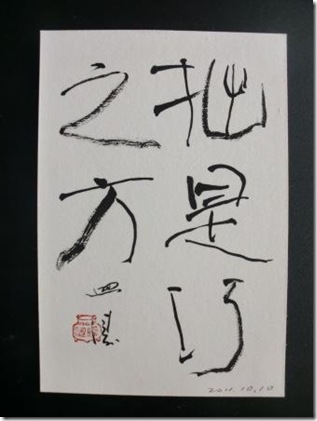 拙是巧
之方
2011.10.10